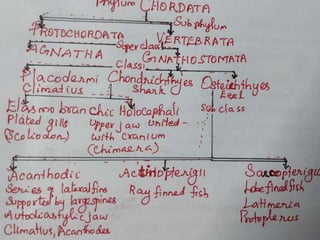 Phylum CHORDATA
Subphylum
PROTOCHORDATA VERTEBRATA
Superclass
AGNATHA GNATHOSTOMATA
Class
Placodermi Chondrichthyes Osteichthyes
Climatius Shark
Subclass
Elasmobranchic Holocephali
Plated gills Upper jaw united
(Scoliodon) with cranium
(Chimaera)
Acanthodii Actinopterigii Sarcopterigii
Series of lateral fins Ray finned fish Lobe finned fish
Supported by large spines Latimeria
Autodiastylic jaw Protopterus
Climatius, Acanthodes